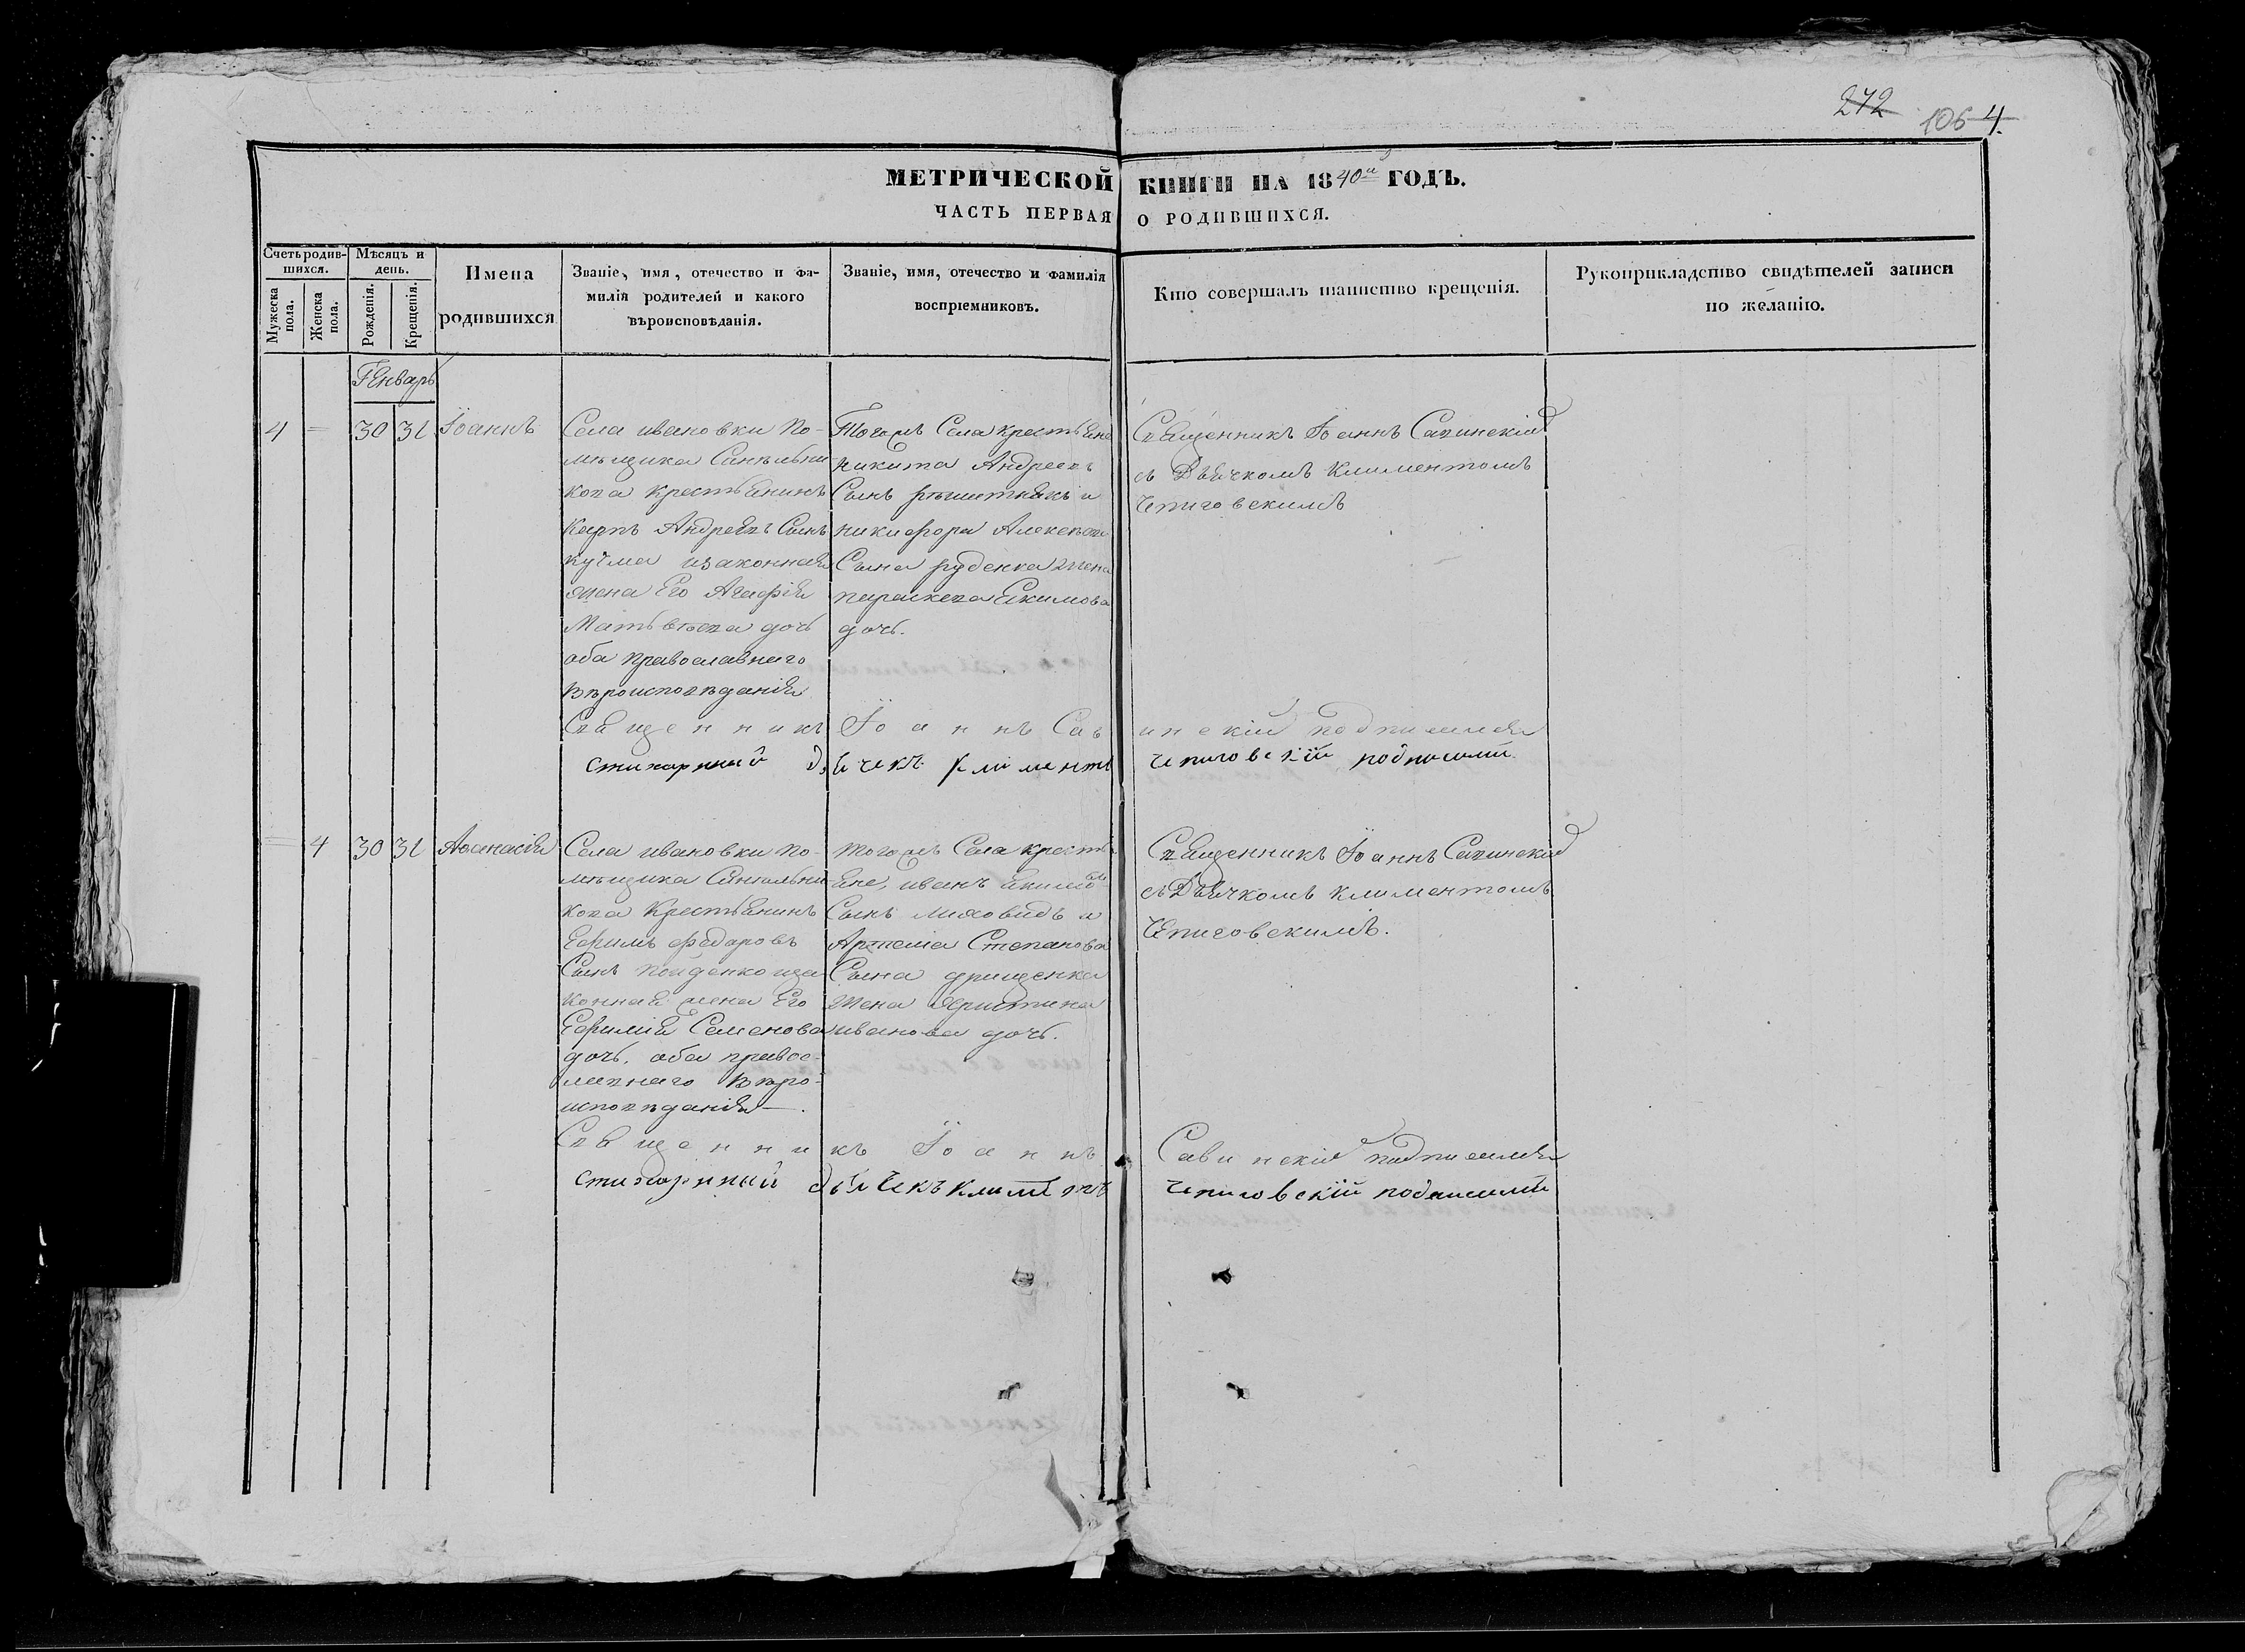 272
106 4.
МЕТРИЧЕСКОЙ КНИГИ НА 1840й ГОДЪ.
ЧАСТЬ ПЕРВАЯ О РОДИВШИХСЯ.
Счетъ родив-
шихся.
Мужеска
пола.
Женска
пола.
Мѣсяцъ и
день.
Рожденія.
Крещенія.
Имена
родившихся
Званіе, имя, отечество и фа-
милія родителей и какого
вѣроисповѣданія.
Званіе, имя, отечество и фамилія
воспріемниковъ.
Кто совершалъ таинство крещенія.
Рукоприкладство свидѣтелей записи
по желанію.
Генварь
4 = 30 31 Іоаннъ
Села ивановки По-
мѣщика Синельни
кова крестьянинъ
Карпъ Андреевъ Сынъ
кучма изаконная
жена Его Агафія
Матвѣева дочь
оба православнаго
вѣроисповѣданія
Тогожъ Села крестьяне
никита Андреевъ
Сынъ рѣшетнякъ и
никифора Алексѣева
Сына руденка жена
параскева Екимова
дочь.
Священникъ Іоаннъ Савинскій
съ Дьячкомъ Климентомъ
Чепиговскимъ
Священникъ Іоаннъ Савинскій подписался
стихарный дьячекъ климентъ чепиговскій подписалъ
= 4 30 31 Афанасія
Села ивановки по-
мѣщика Синельни
кова Крестьянинъ
Ефимъ федоровъ
Сынъ пойденко иза
конная жена Его
Ефимія Семенова
дочь, оба правос-
лавнаго вѣро-
исповѣданія.
тогожъ Села кресть
яне, иванъ Екимов
Сынъ миховидъ и
Артема Степанова
Сына грищенка
жена Христина
иванова дочь.
Священникъ Іоаннъ Савинскій
съ Дьячкомъ Климентомъ
Чепиговскимъ.
Священникъ Іоаннъ Савинскій подписался
стихарный дьячекъ климентъ чепиговскій подписалъ